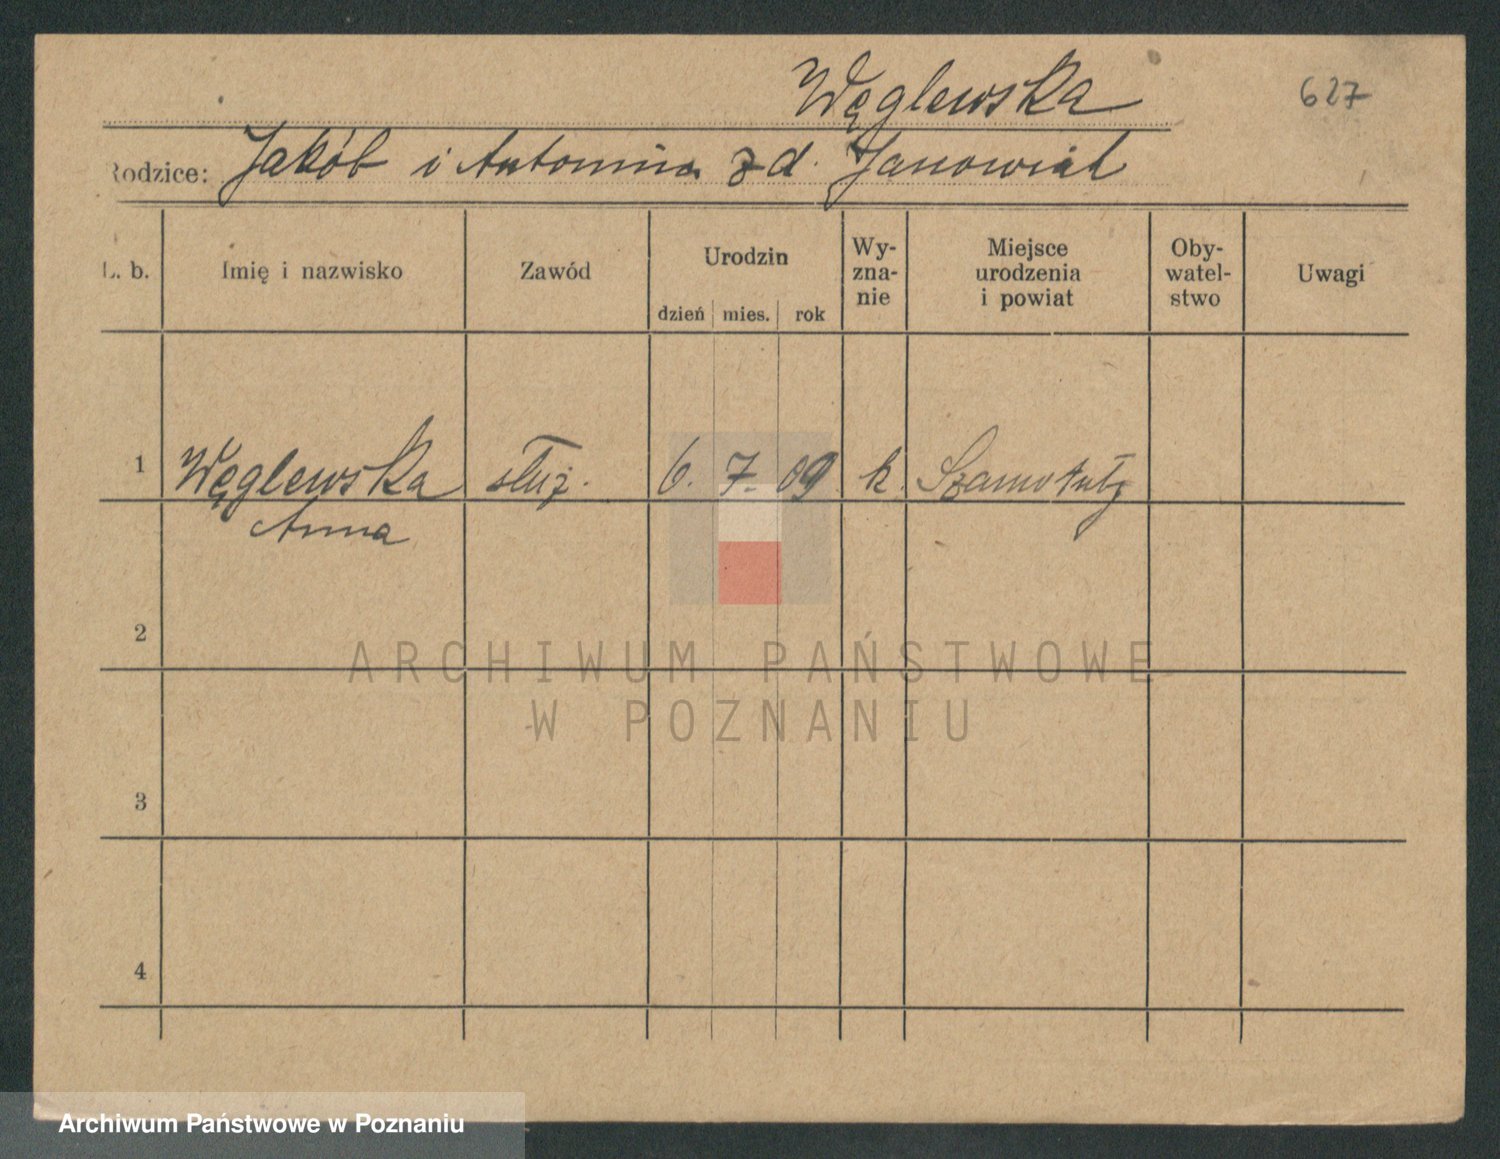 Węglewska
627
Rodzice: Jakób i Antonina z d. Janowiak
L. b. Imię i nazwisko Zawód Urodzin dzień mies. rok Wyzna-nie Miejsce urodzenia i powiat Oby-watel-stwo Uwagi
1 Węglewska służ. 6. 7. 09 k. Szamotuły
Anna
2
ARCHIWUM PAŃSTWOWE
W POZNANIU
3
4
Archiwum Państwowe w Poznaniu